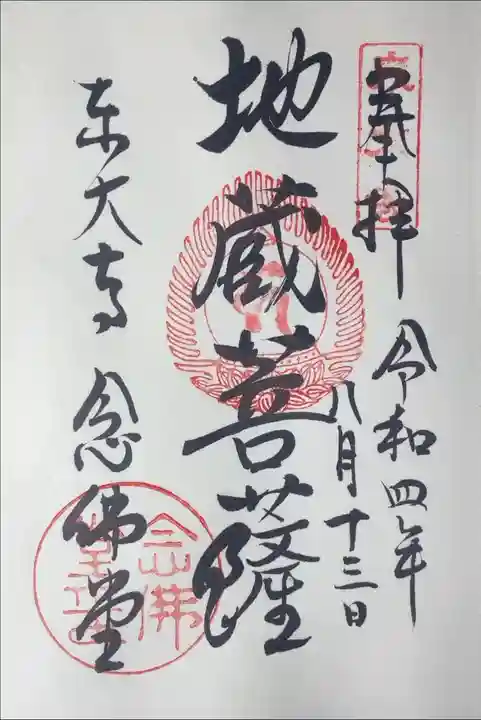 奉拝
令和四年
八月十三日
地蔵菩薩
東大寺 念佛堂
念佛